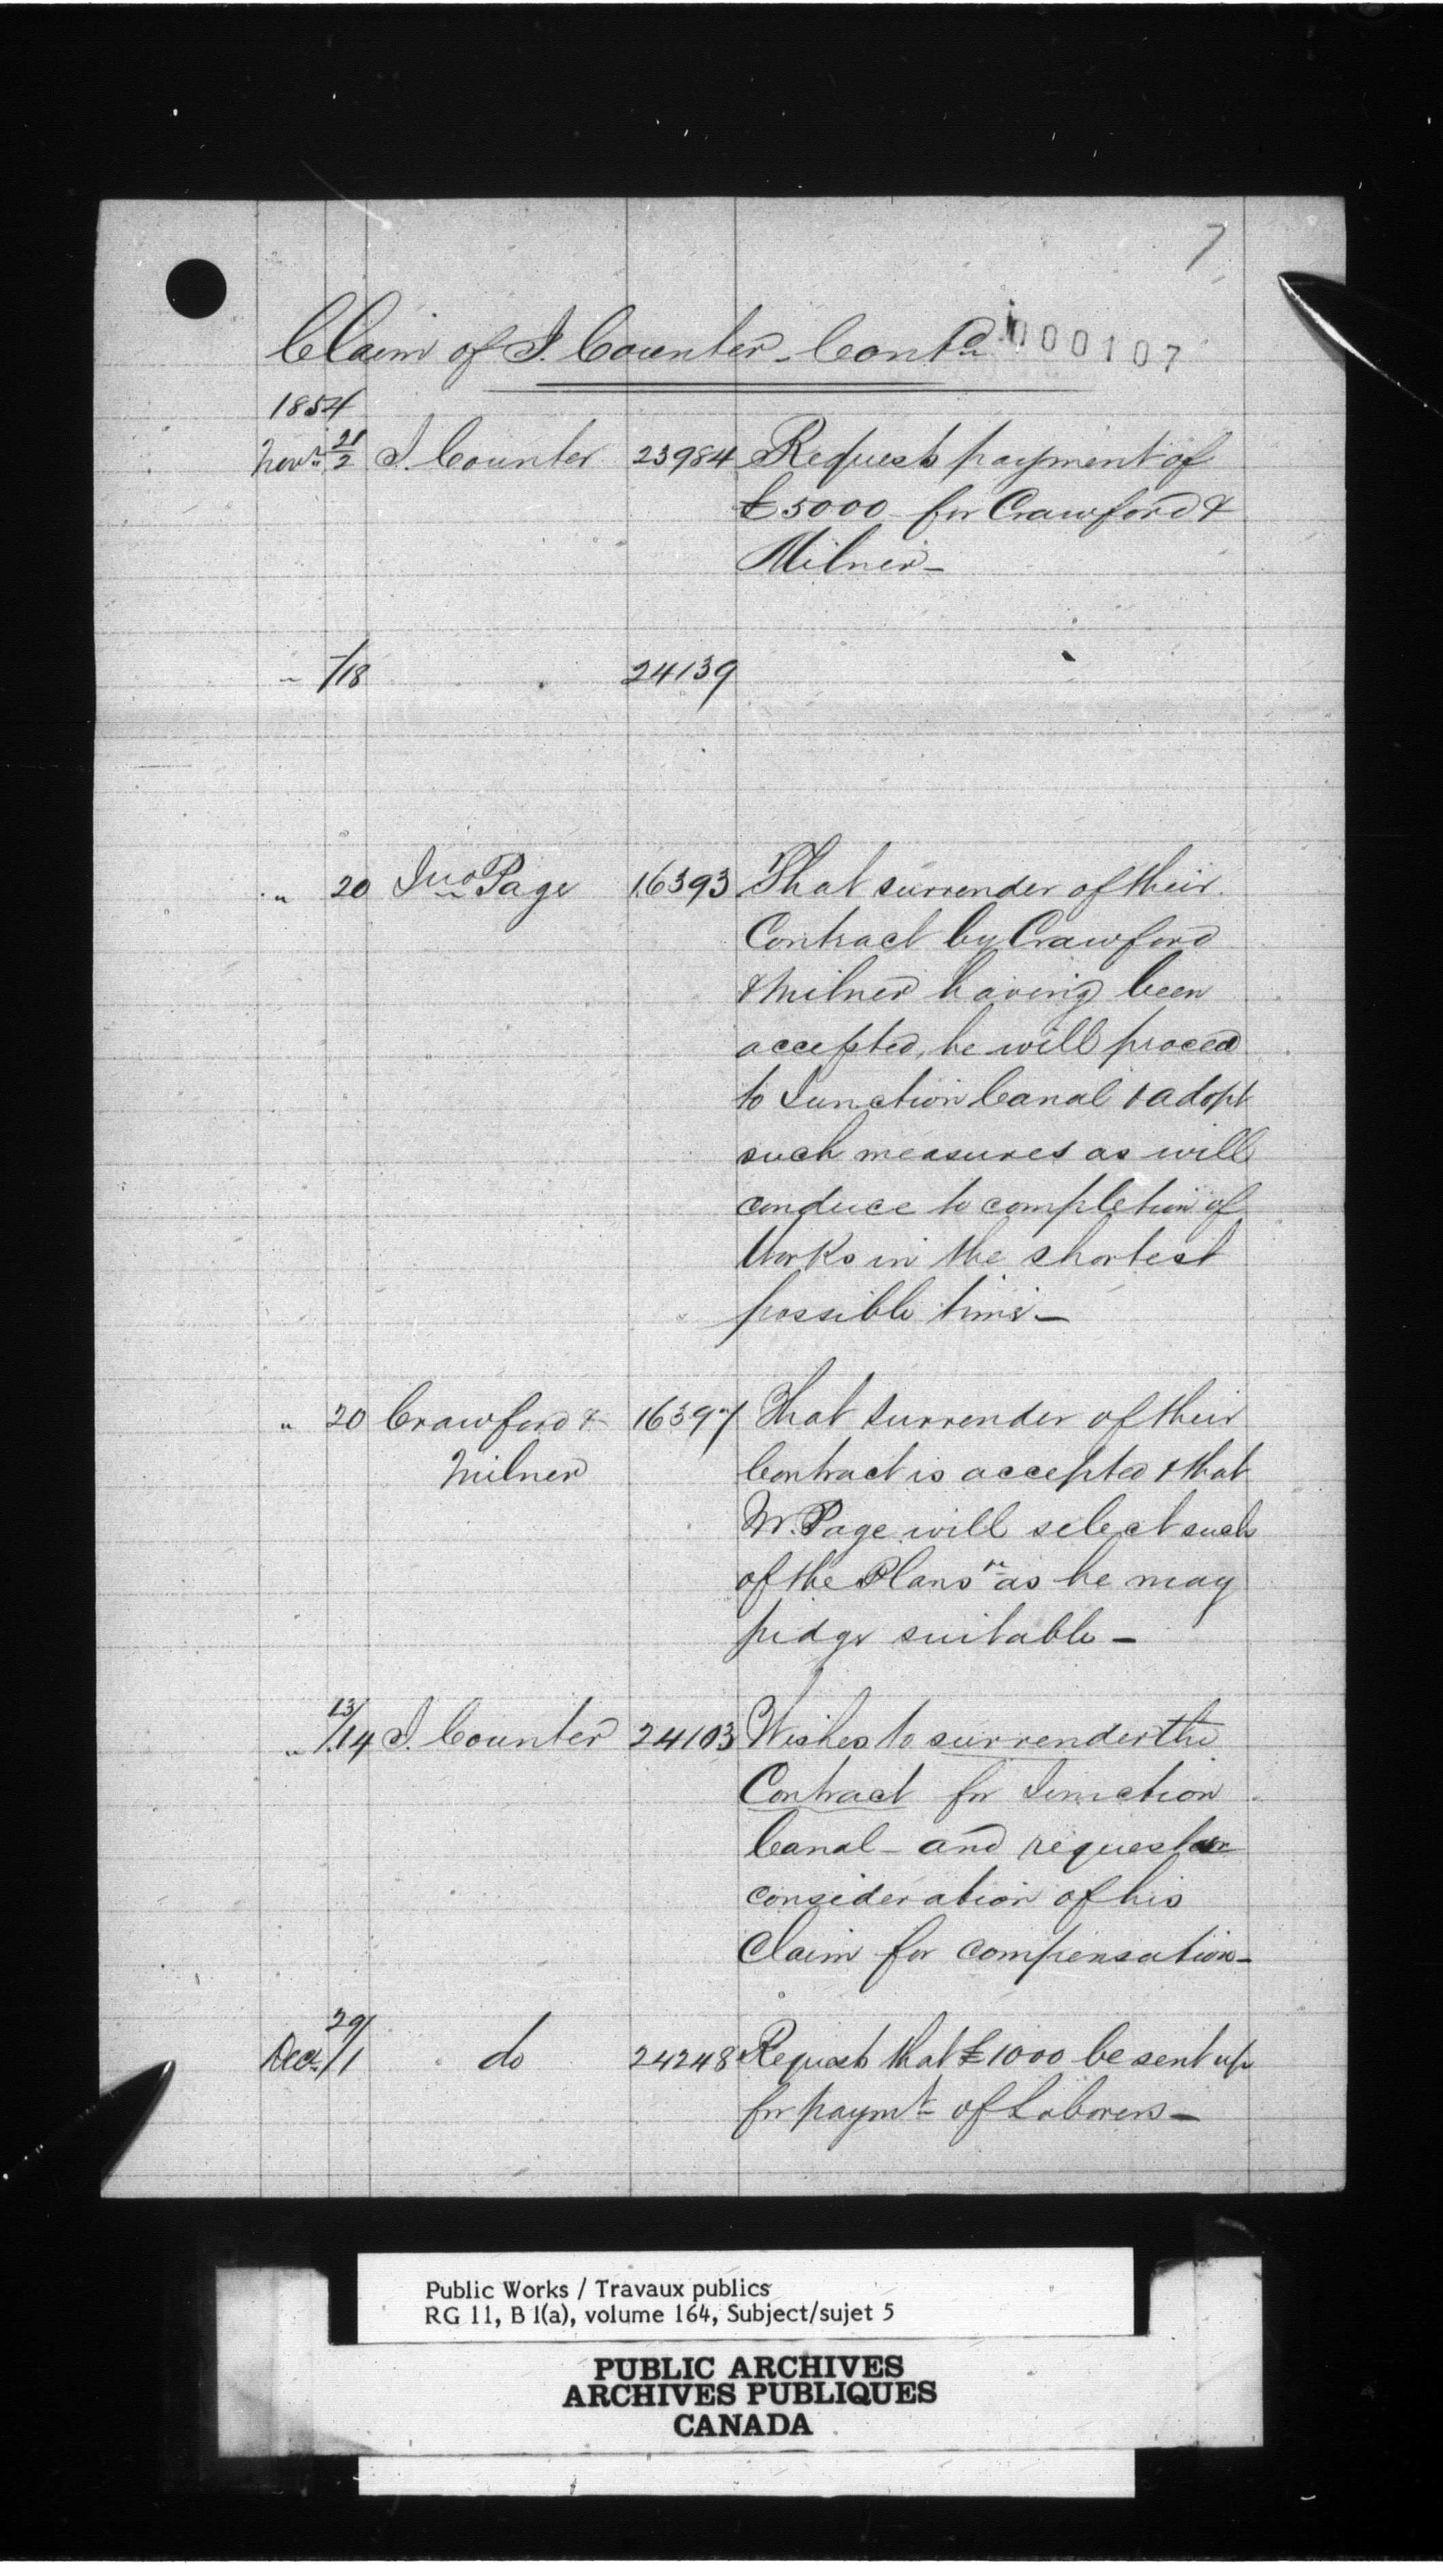 7
Claim of J. Counter - Contd
000107
1854
Novr 21/2 J. Counter 23984 Requests payment of
£5000 for Crawford &
Milner -
" /18 24139
" 20 Jno Page 16393 That surrender of their
Contract by Crawford
& Milner having been
accepted, he will proceed
to Junction Canal & adopt
such measures as will
conduce to completion of
Works in the shortest
possible time -
" 20 Crawford & 16397 That surrender of their
Milner Contract is accepted & that
Mr. Page will select such
of the Plans as he may
judge suitable -
" 13/14 J. Counter 24103 Wishes to surrender the
Contract for Junction
Canal - and requests
consideration of his
Claim for compensation -
Decr 29/1 do 24248 Requests that £1000 be sent up
for paymt of Laborers -
Public Works / Travaux publics
RG 11, B 1(a), volume 164, Subject/sujet 5
PUBLIC ARCHIVES
ARCHIVES PUBLIQUES
CANADA